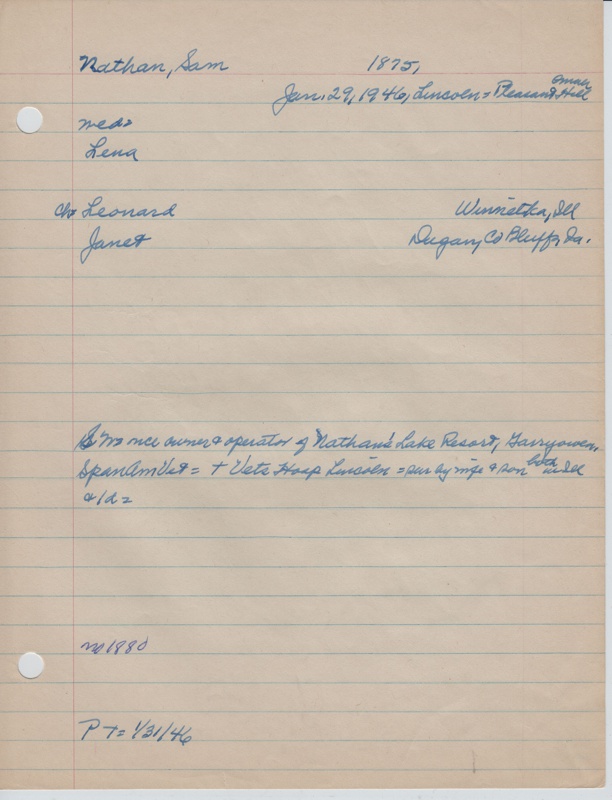 Nathan, Sam 1875,
Omaha
Jan. 29, 1946, Lincoln = Pleasant Hill
med=
Lena
ch= Leonard Winnetka, Ill
Janet Dugan, Co Bluffs, Ia.
S "m once owner & operator of Nathan's Lake Resort, Garryowen,
both
SpanAmVet = + Vets Hosp Lincoln = sur by wife & son in Ill
& 1d =
no 1880
P T= 1/31/46